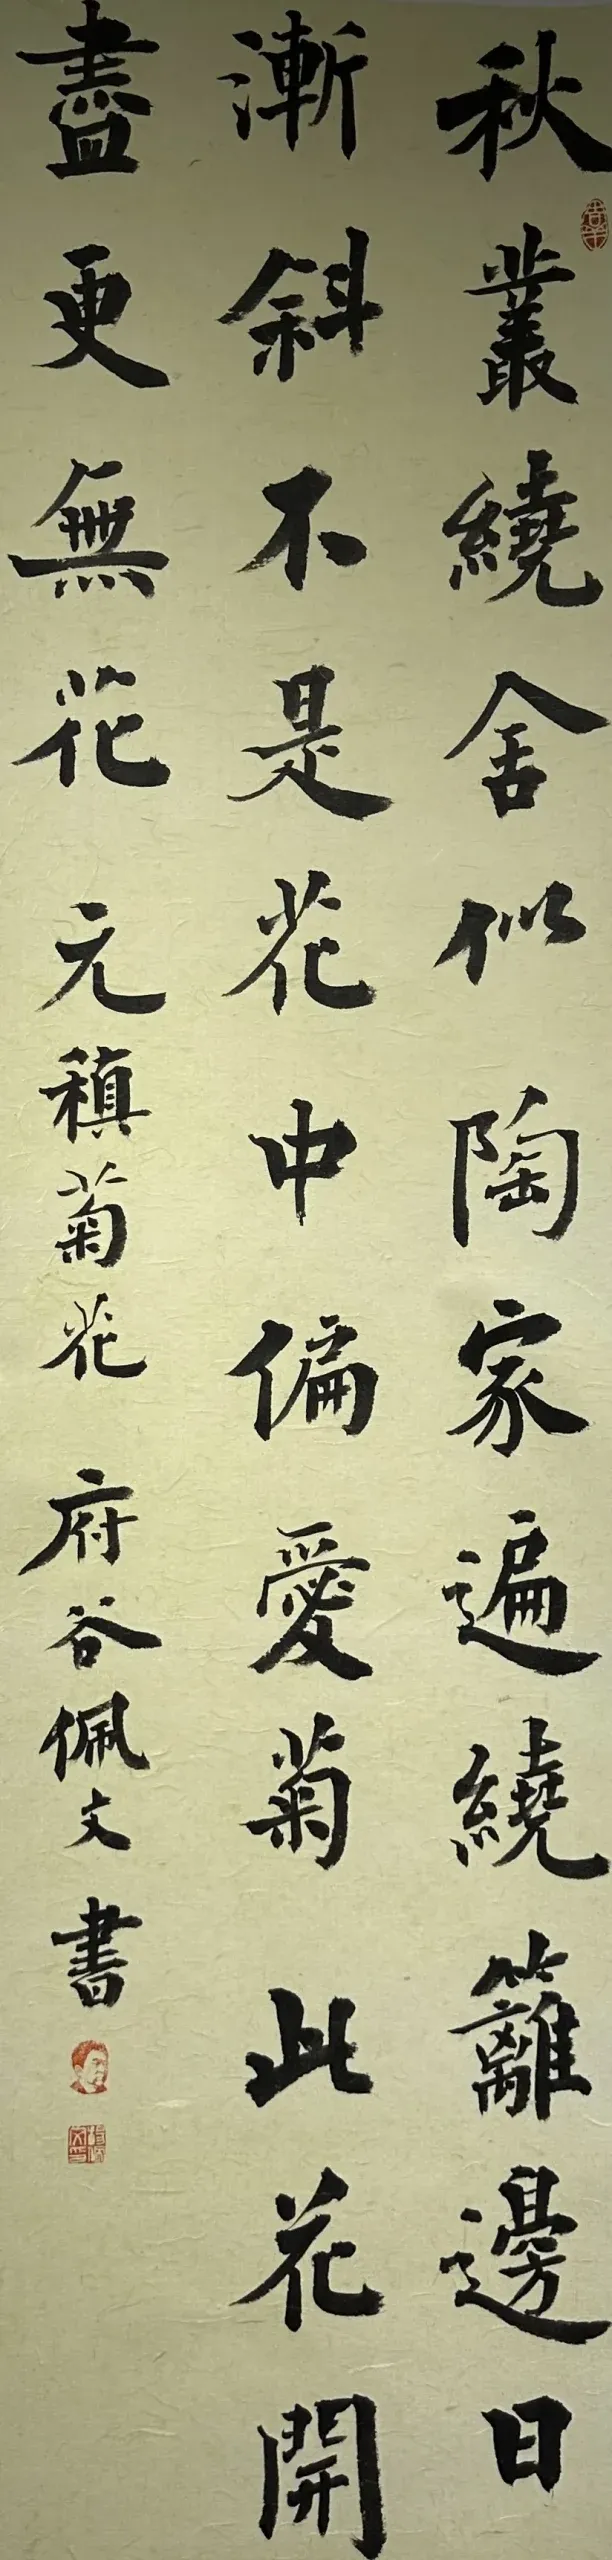 秋叢繞舍似陶家遍繞籬邊日
漸斜不是花中偏愛菊此花開
盡更無花元稹菊花府谷佩文書